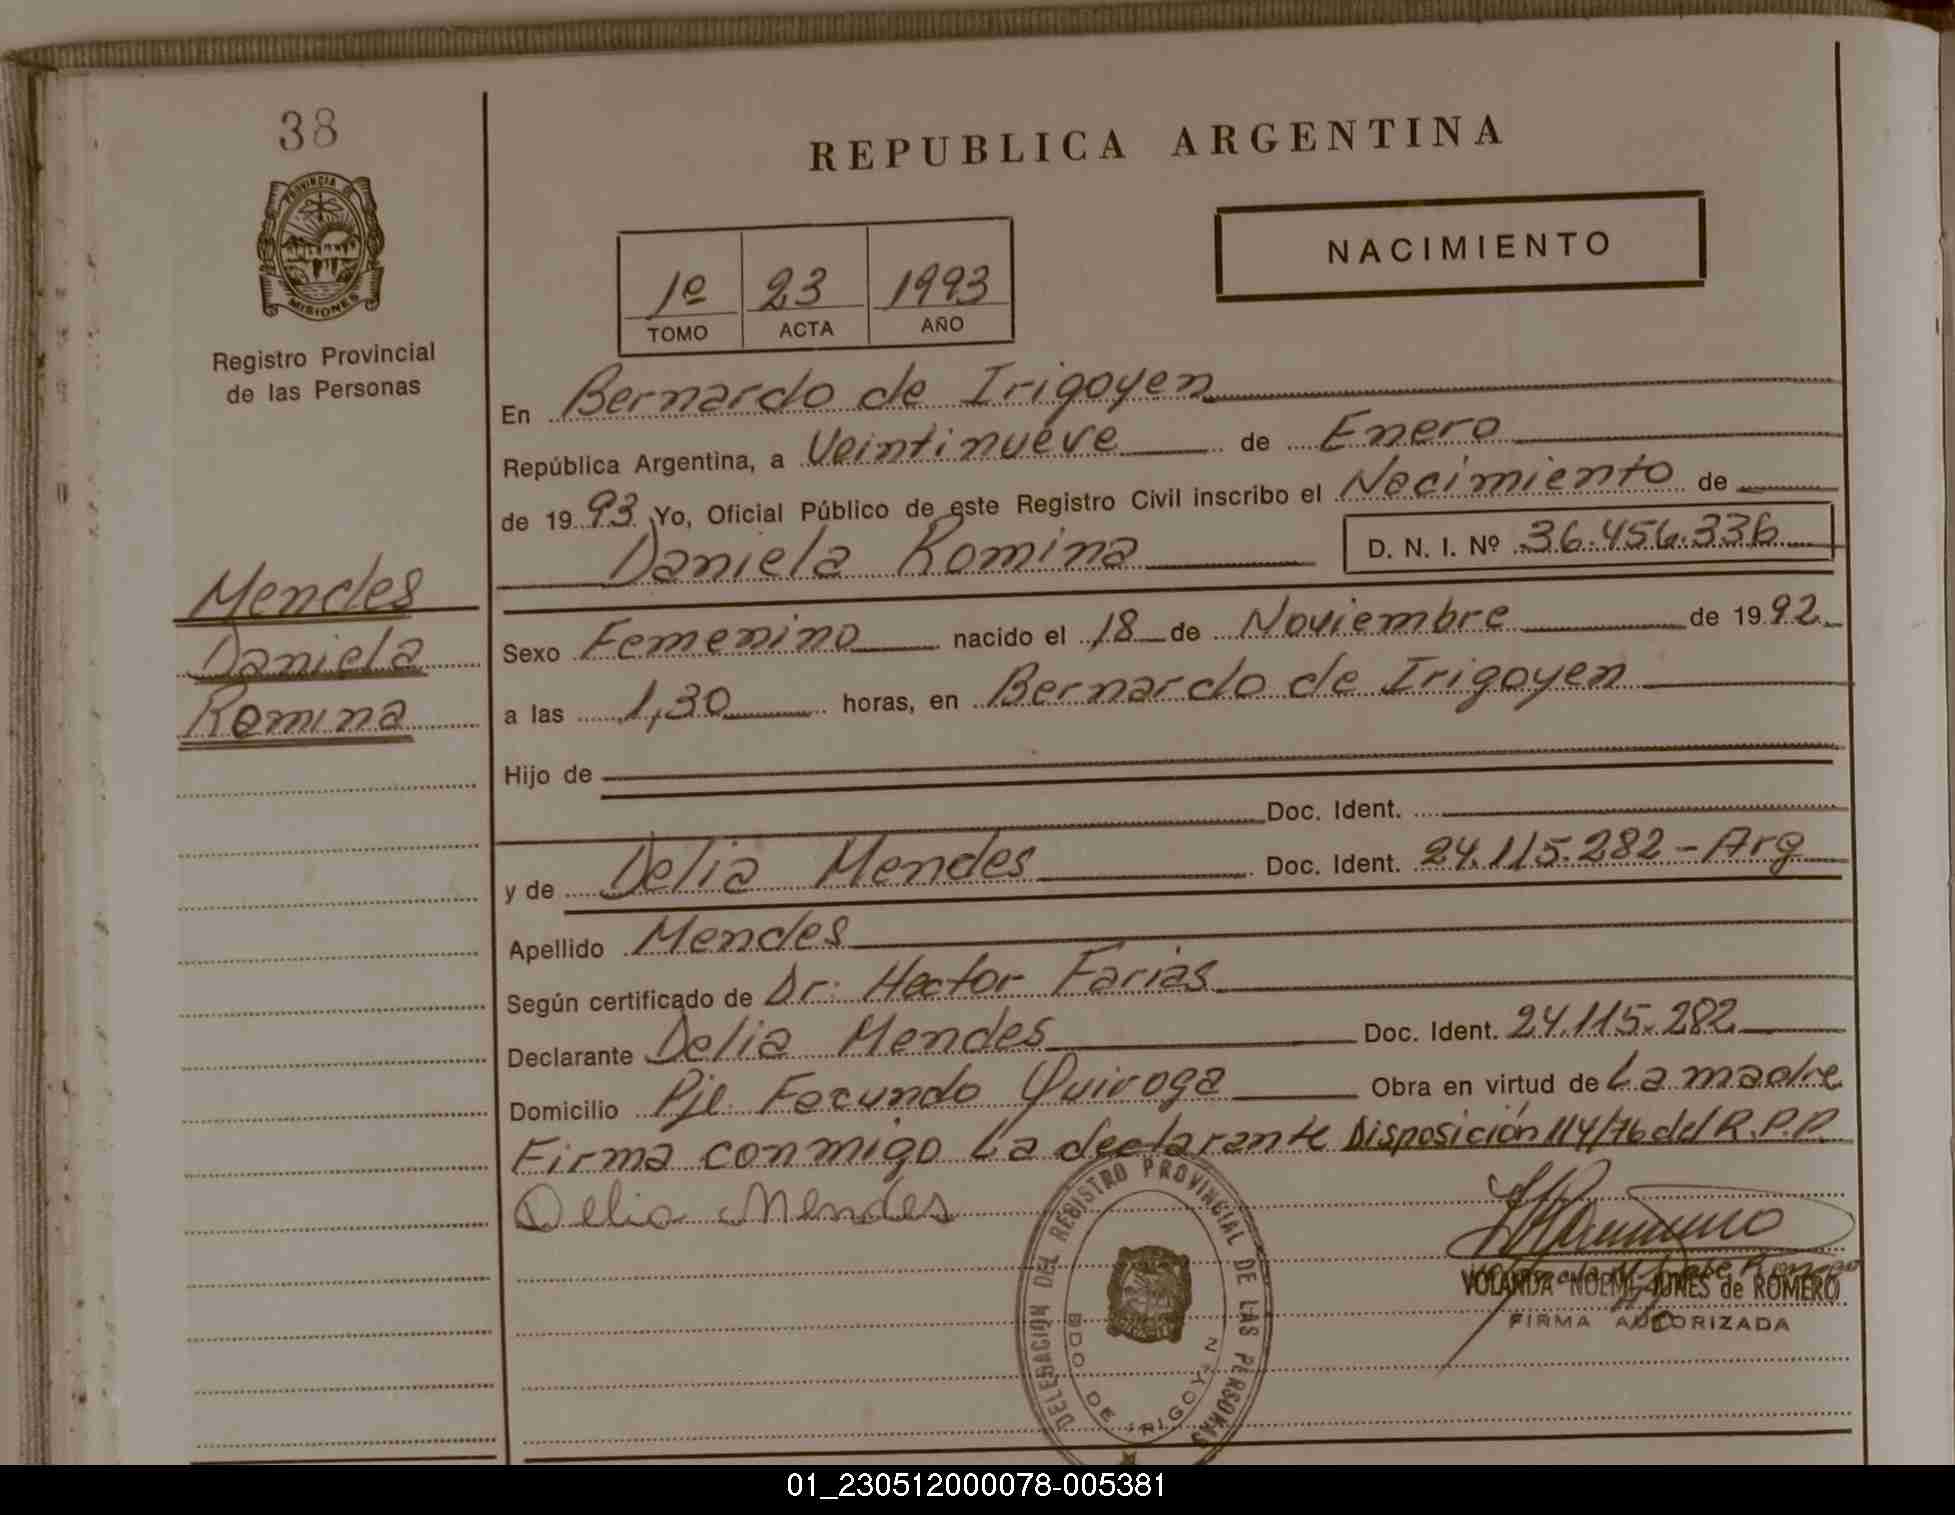 38
PROVINCIA DE
MISIONES
Registro Provincial
de las Personas
Mendes
Daniela
Romina
REPUBLICA ARGENTINA
NACIMIENTO
1º 23 1993
TOMO ACTA AÑO
En Bernardo de Irigoyen
República Argentina, a Veintinueve de Enero
de 1993 Yo, Oficial Público de este Registro Civil inscribo el Nacimiento de
Daniela Romina D. N. I. Nº 36.456.336
Sexo Femenino nacido el 18 de Noviembre de 1992
a las 1,30 horas, en Bernardo de Irigoyen
Hijo de
Doc. Ident.
y de Delia Mendes Doc. Ident. 24.115.282 - Arg
Apellido Mendes
Según certificado de Dr. Hector Farias
Declarante Delia Mendes Doc. Ident. 24.115.282
Domicilio Pje. Facundo Quiroga Obra en virtud de La madre
Firma conmigo La declarante Disposición 114/76 del R.P.P.
Delia Mendes
DELEGACION DEL REGISTRO PROVINCIAL DE LAS PERSONAS
BDO DE IRIGOYEN
YOLANDA NOEMI JUNES de ROMERO
FIRMA AUTORIZADA
01_230512000078-005381